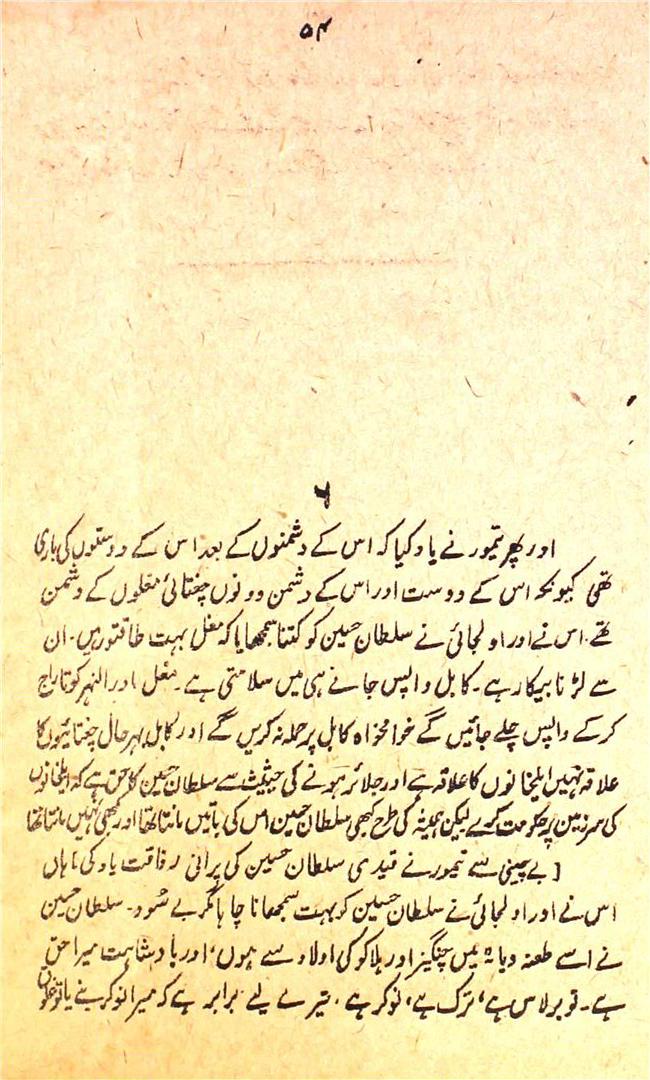 ۵۴
۶
اور پھر تیمور نے یاد کیا کہ اس کے دشمنوں کے بعد اس کے دوستوں کی باری
تھی کیونکہ اس کے دوست اور اس کے دشمن دونوں چغتائی مغلوں کے دشمن
تھے۔ اس نے اور اولجائی نے سلطان حسین کو کتنا سمجھایا کہ مغل بہت طاقتور ہیں۔ ان
سے لڑنا بیکار ہے۔ کابل واپس جانے ہی میں سلامتی ہے۔ مغل ماورالنہر کو تاراج
کرکے واپس چلے جائیں گے خوامخواہ کابل پر حملہ نہ کریں گے اور کابل بہر حال چغتائیوں کا
علاقہ نہیں ایلخانوں کا علاقہ ہے اور جلائر ہونے کی حیثیت سے سلطان حسین کا حق ہے کہ ایلخانوں
کی سرزمین پر حکومت کرے لیکن ہمیشہ کی طرح کبھی سلطان حسین اس کی باتیں مانتا تھا اور کبھی نہیں مانتا تھا
بے چینی سے تیمور نے قیدی سلطان حسین کی پرانی رفاقت یاد کی۔ ہاں
اس نے اور اولجائی نے سلطان حسین کو بہت سمجھانا چاہا مگر بے سُود۔ سلطان حسین
نے اسے طعنہ دیا: میں چنگیز اور ہلاکو کی اولاد سے ہوں، اور بادشاہت میرا حق
ہے۔ تو برلاس ہے، ترک ہے، نوکر ہے۔ تیرے لیے برابر ہے کہ میرا نوکر بنے یا